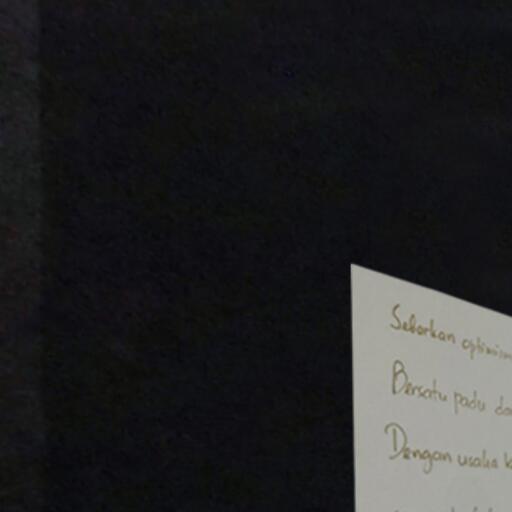 Sebarkan optimism
Bersatu padu da
Dengan usaha k